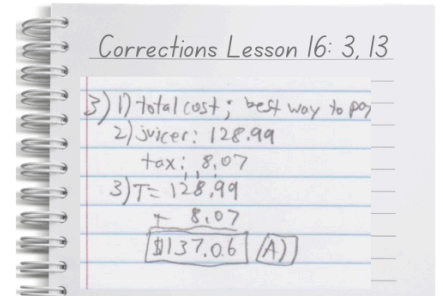 Corrections Lesson 16: 3, 13
3) 1) total cost; best way to pay
2) juicer: 128.99
tax: 8.07
3) T= 128.99
+ 8.07
$137.06 A)